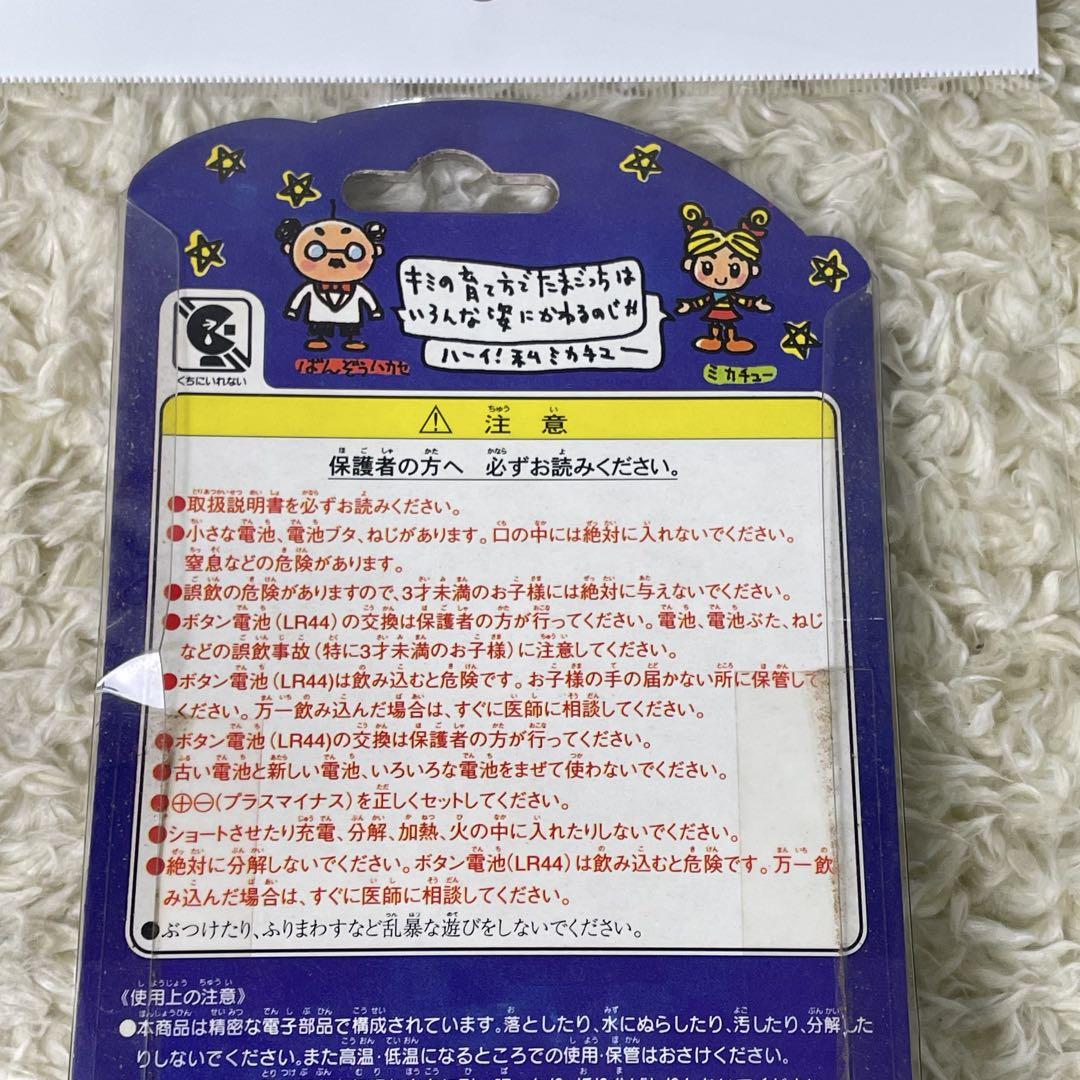 キミの育て方でたまごっちは
いろんな姿にかわるのじゃ
ハーイ!私ミカチュー
ばんぞうハカセ
ミカチュー
くちにいれない
⚠ 注意
保護者の方へ 必ずお読みください。
●取扱説明書を必ずお読みください。
●小さな電池、電池ブタ、ねじがあります。口の中には絶対に入れないでください。
窒息などの危険があります。
●誤飲の危険がありますので、3才未満のお子様には絶対に与えないでください。
●ボタン電池(LR44)の交換は保護者の方が行ってください。電池、電池ぶた、ねじ
などの誤飲事故(特に3才未満のお子様)に注意してください。
●ボタン電池(LR44)は飲み込むと危険です。お子様の手の届かない所に保管して
ください。万一飲み込んだ場合は、すぐに医師に相談してください。
●ボタン電池(LR44)の交換は保護者の方が行ってください。
●古い電池と新しい電池、いろいろな電池をまぜて使わないでください。
●⊕⊖(プラスマイナス)を正しくセットしてください。
●ショートさせたり充電、分解、加熱、火の中に入れたりしないでください。
●絶対に分解しないでください。ボタン電池(LR44)は飲み込むと危険です。万一飲
み込んだ場合は、すぐに医師に相談してください。
●ぶつけたり、ふりまわすなど乱暴な遊びをしないでください。
《使用上の注意》
●本商品は精密な電子部品で構成されています。落としたり、水にぬらしたり、汚したり、分解した
りしないでください。また高温・低温になるところでの使用・保管はおさけください。